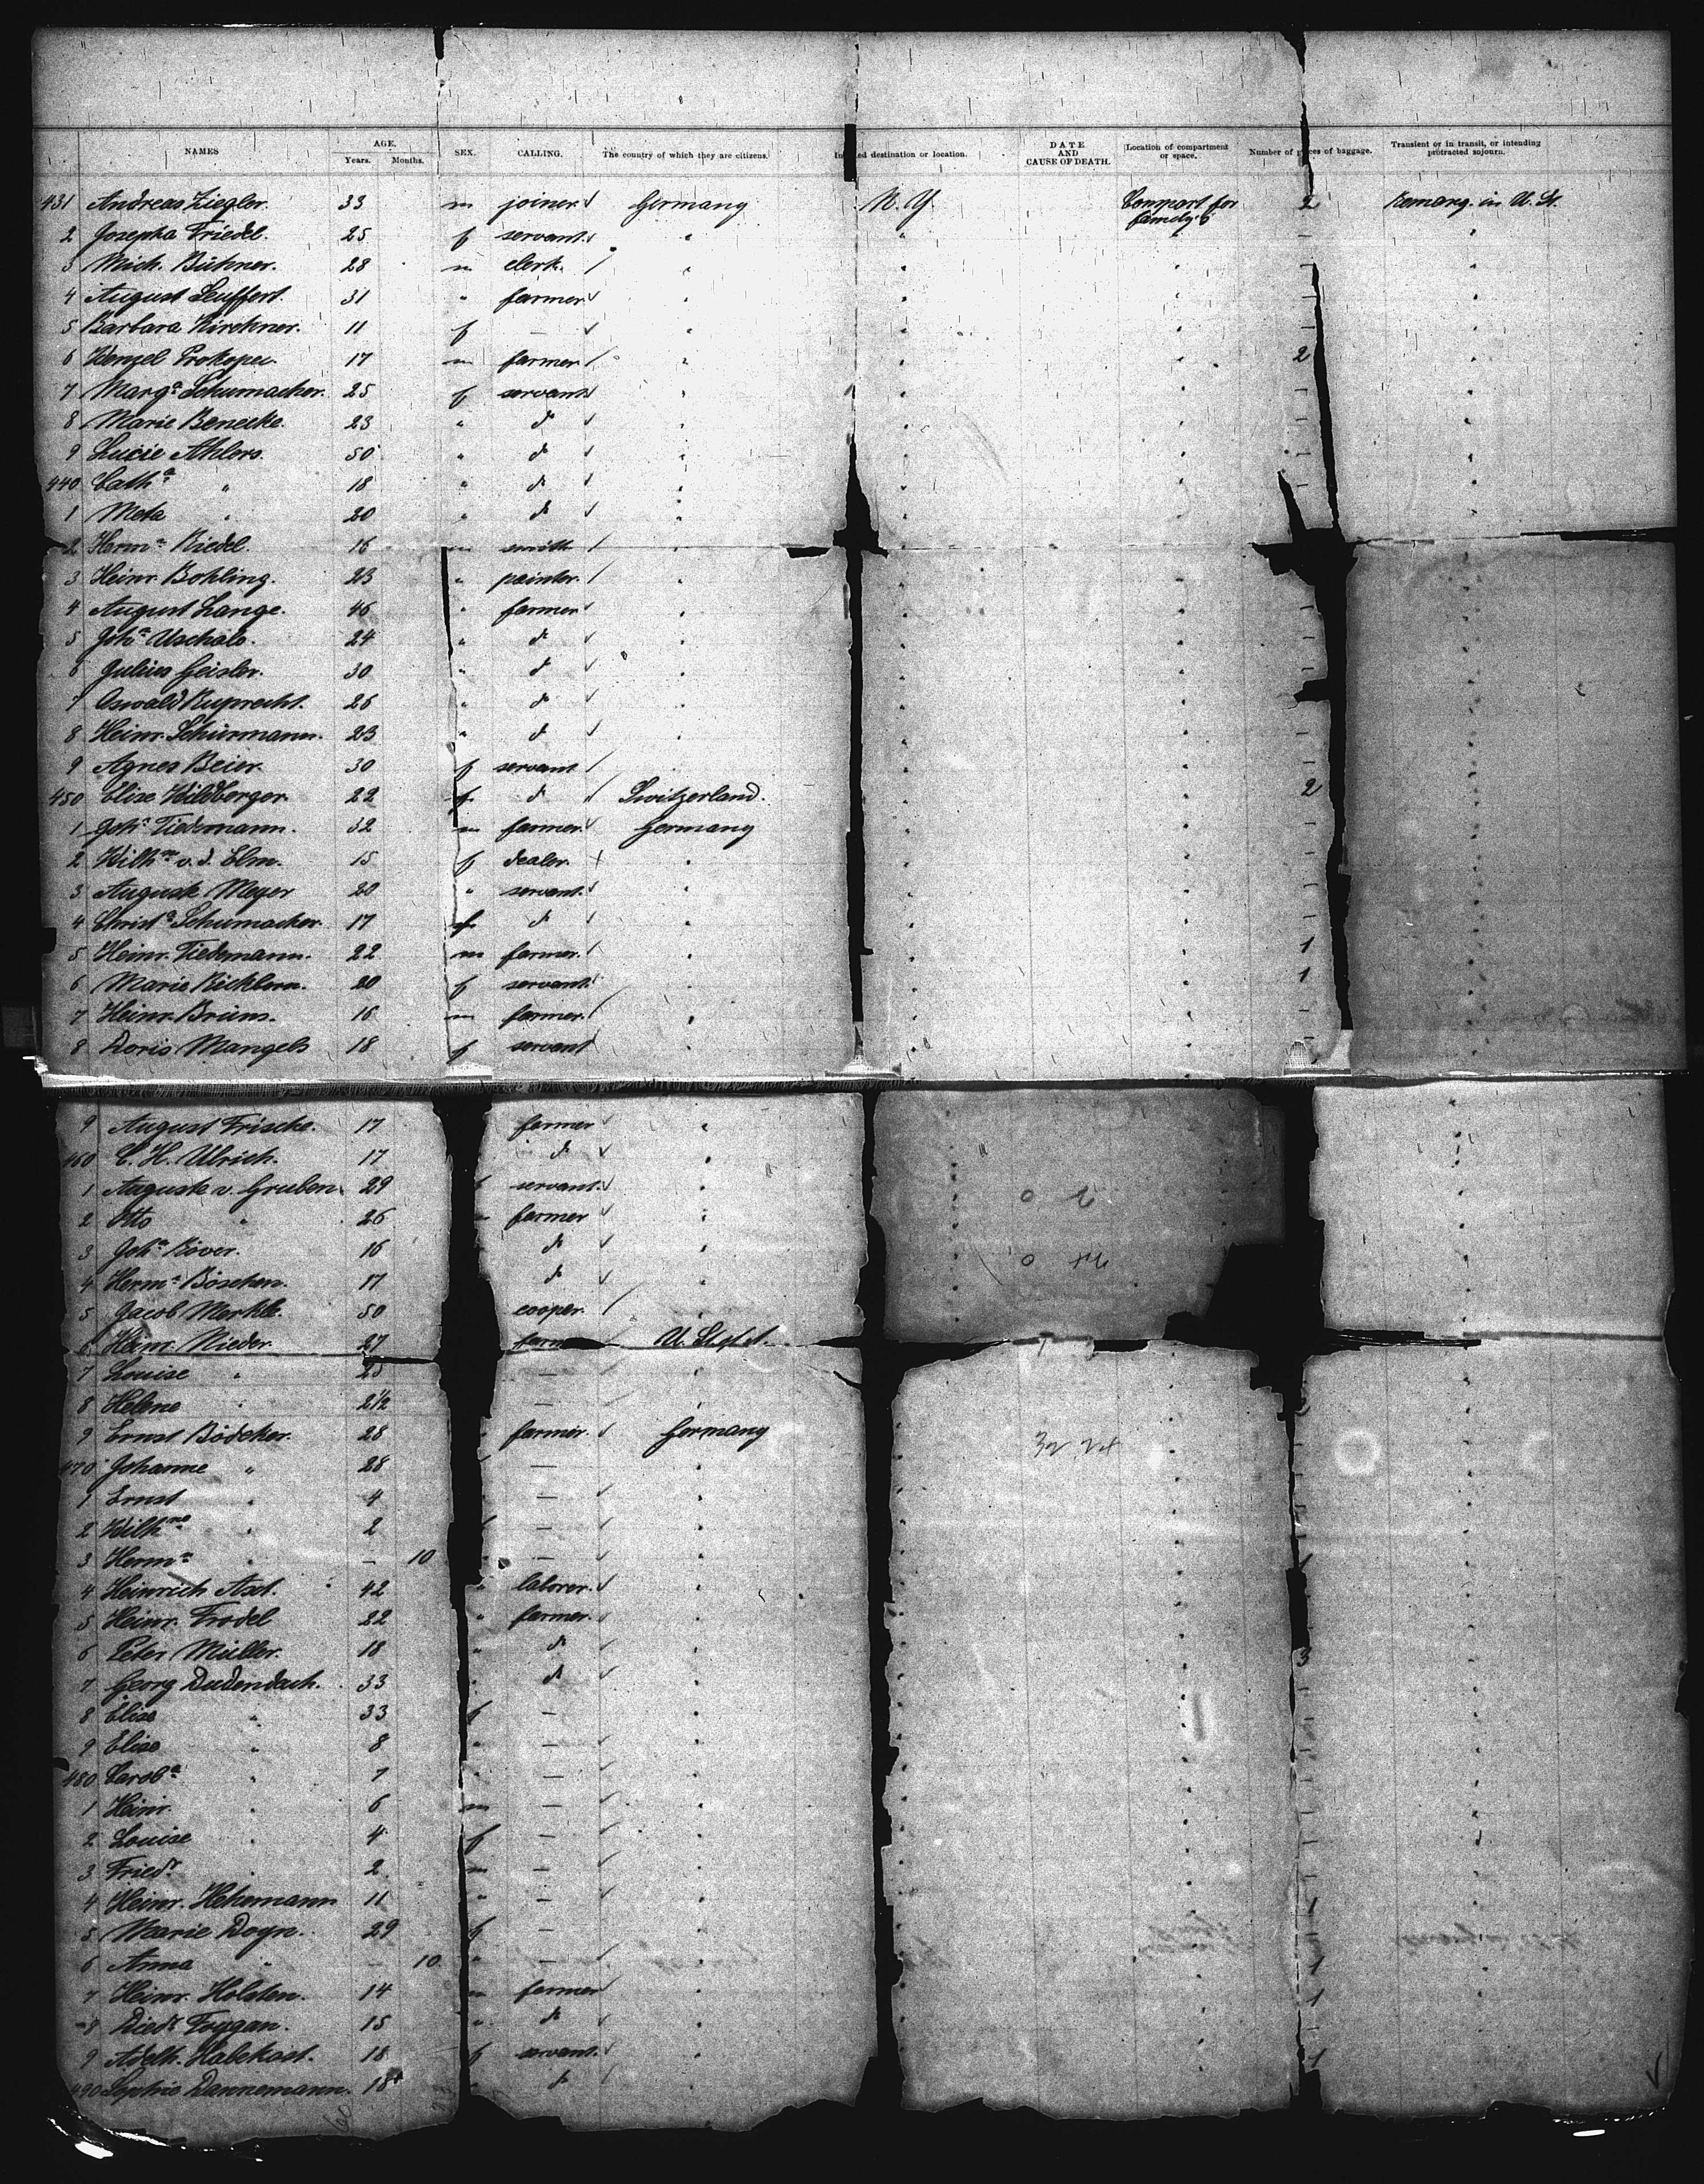 NAMES AGE. Years. Months. SEX. CALLING. The country of which they are citizens. In ed destination or location. DATE AND CAUSE OF DEATH. Location of compartment or space. Number of p ces of baggage. Transient or in transit, or intending protracted sojourn.
431 Andreas Ziegler. 33 m joiner Germany N. Y. Compart for family's 2 in U. St.
2 Josepha Friedel. 25 f servant. "
3 Mich. Bühner. 28 m clerk. "
4 August Leuffert. 31 " farmer "
5 Barbara Kirchner. 11 f — "
6 Wenzel Prokopec 17 m farmer " 2
7 Margª Schumacher. 25 f servant "
8 Marie Benecke. 23 " do "
9 Lucie Ahlers. 50 " do "
440 Cathª " 18 " do "
1 Meta " 20 " do "
2 Hermⁿ Riedel. 16 m smith "
3 Heinr. Bohling. 23 " painter. "
4 August Lange. 46 " farmer "
5 Johⁿ Uschalo. 24 " do "
6 Julius Geisler. 30 " do "
7 Oswald Ruprecht. 26 " do "
8 Heinr. Schürmann. 23 " do "
9 Agnes Beier. 30 f servant "
450 Elise Wildberger 22 f do Switzerland. 2
1 Johⁿ Tiedemann. 32 m farmer Germany
2 Wilhⁿᵉ v. d. Elm. 15 f dealer. "
3 Auguste Meyer 20 " servant. "
4 Christª Schumacher. 17 f do "
5 Heinr. Tiedemann. 22 m farmer. " 1
6 Marie Rickborn. 20 f servant. " 1
7 Heinr. Bruns. 16 m farmer. "
8 Doris Mangels 18 f servant "
9 August Frische. 17 farmer "
460 C. H. Ulrich. 17 do "
1 Auguste v. Gruben. 29 servant. "
2 Otto " 26 farmer "
3 Johⁿ Röver. 16 do "
4 Hermⁿ Böschen. 17 do "
5 Jacob Merkle. 50 cooper. "
6 Heinr. Rieder. 27 farm U. St. of A.
7 Louise " 25 — "
8 Helene " 2½ — "
9 Ernst Bödeker. 28 farmer. Germany
470 Johanne " 28 — "
1 Ernst " 4 — "
2 Wilhⁿᵉ " 2 — "
3 Hermⁿ " — 10 — "
4 Heinrich Axt. 42 " laborer. "
5 Heinr. Frodel 22 " farmer. "
6 Peter Müller. 18 " do " 3
7 Georg Dudendach. 33 " do "
8 Elise " 33 f — "
9 Elise " 8 " — "
480 Carolª " 7 " — "
1 Heinr. " 6 m — "
2 Louise " 4 f — "
3 Friedʳ " 2 m — "
4 Heinr. Hekemann 11 " — " 1
5 Marie Dogn. 29 f — "
6 Anna " — 10 " — " 1
7 Heinr. Holsten. 14 m farmer " 1
8 Diedʳ Foygan. 15 " do "
9 Adelh. Habekost. 18 f servant. " 1
490 Sophie Dannemann. 18 " do "